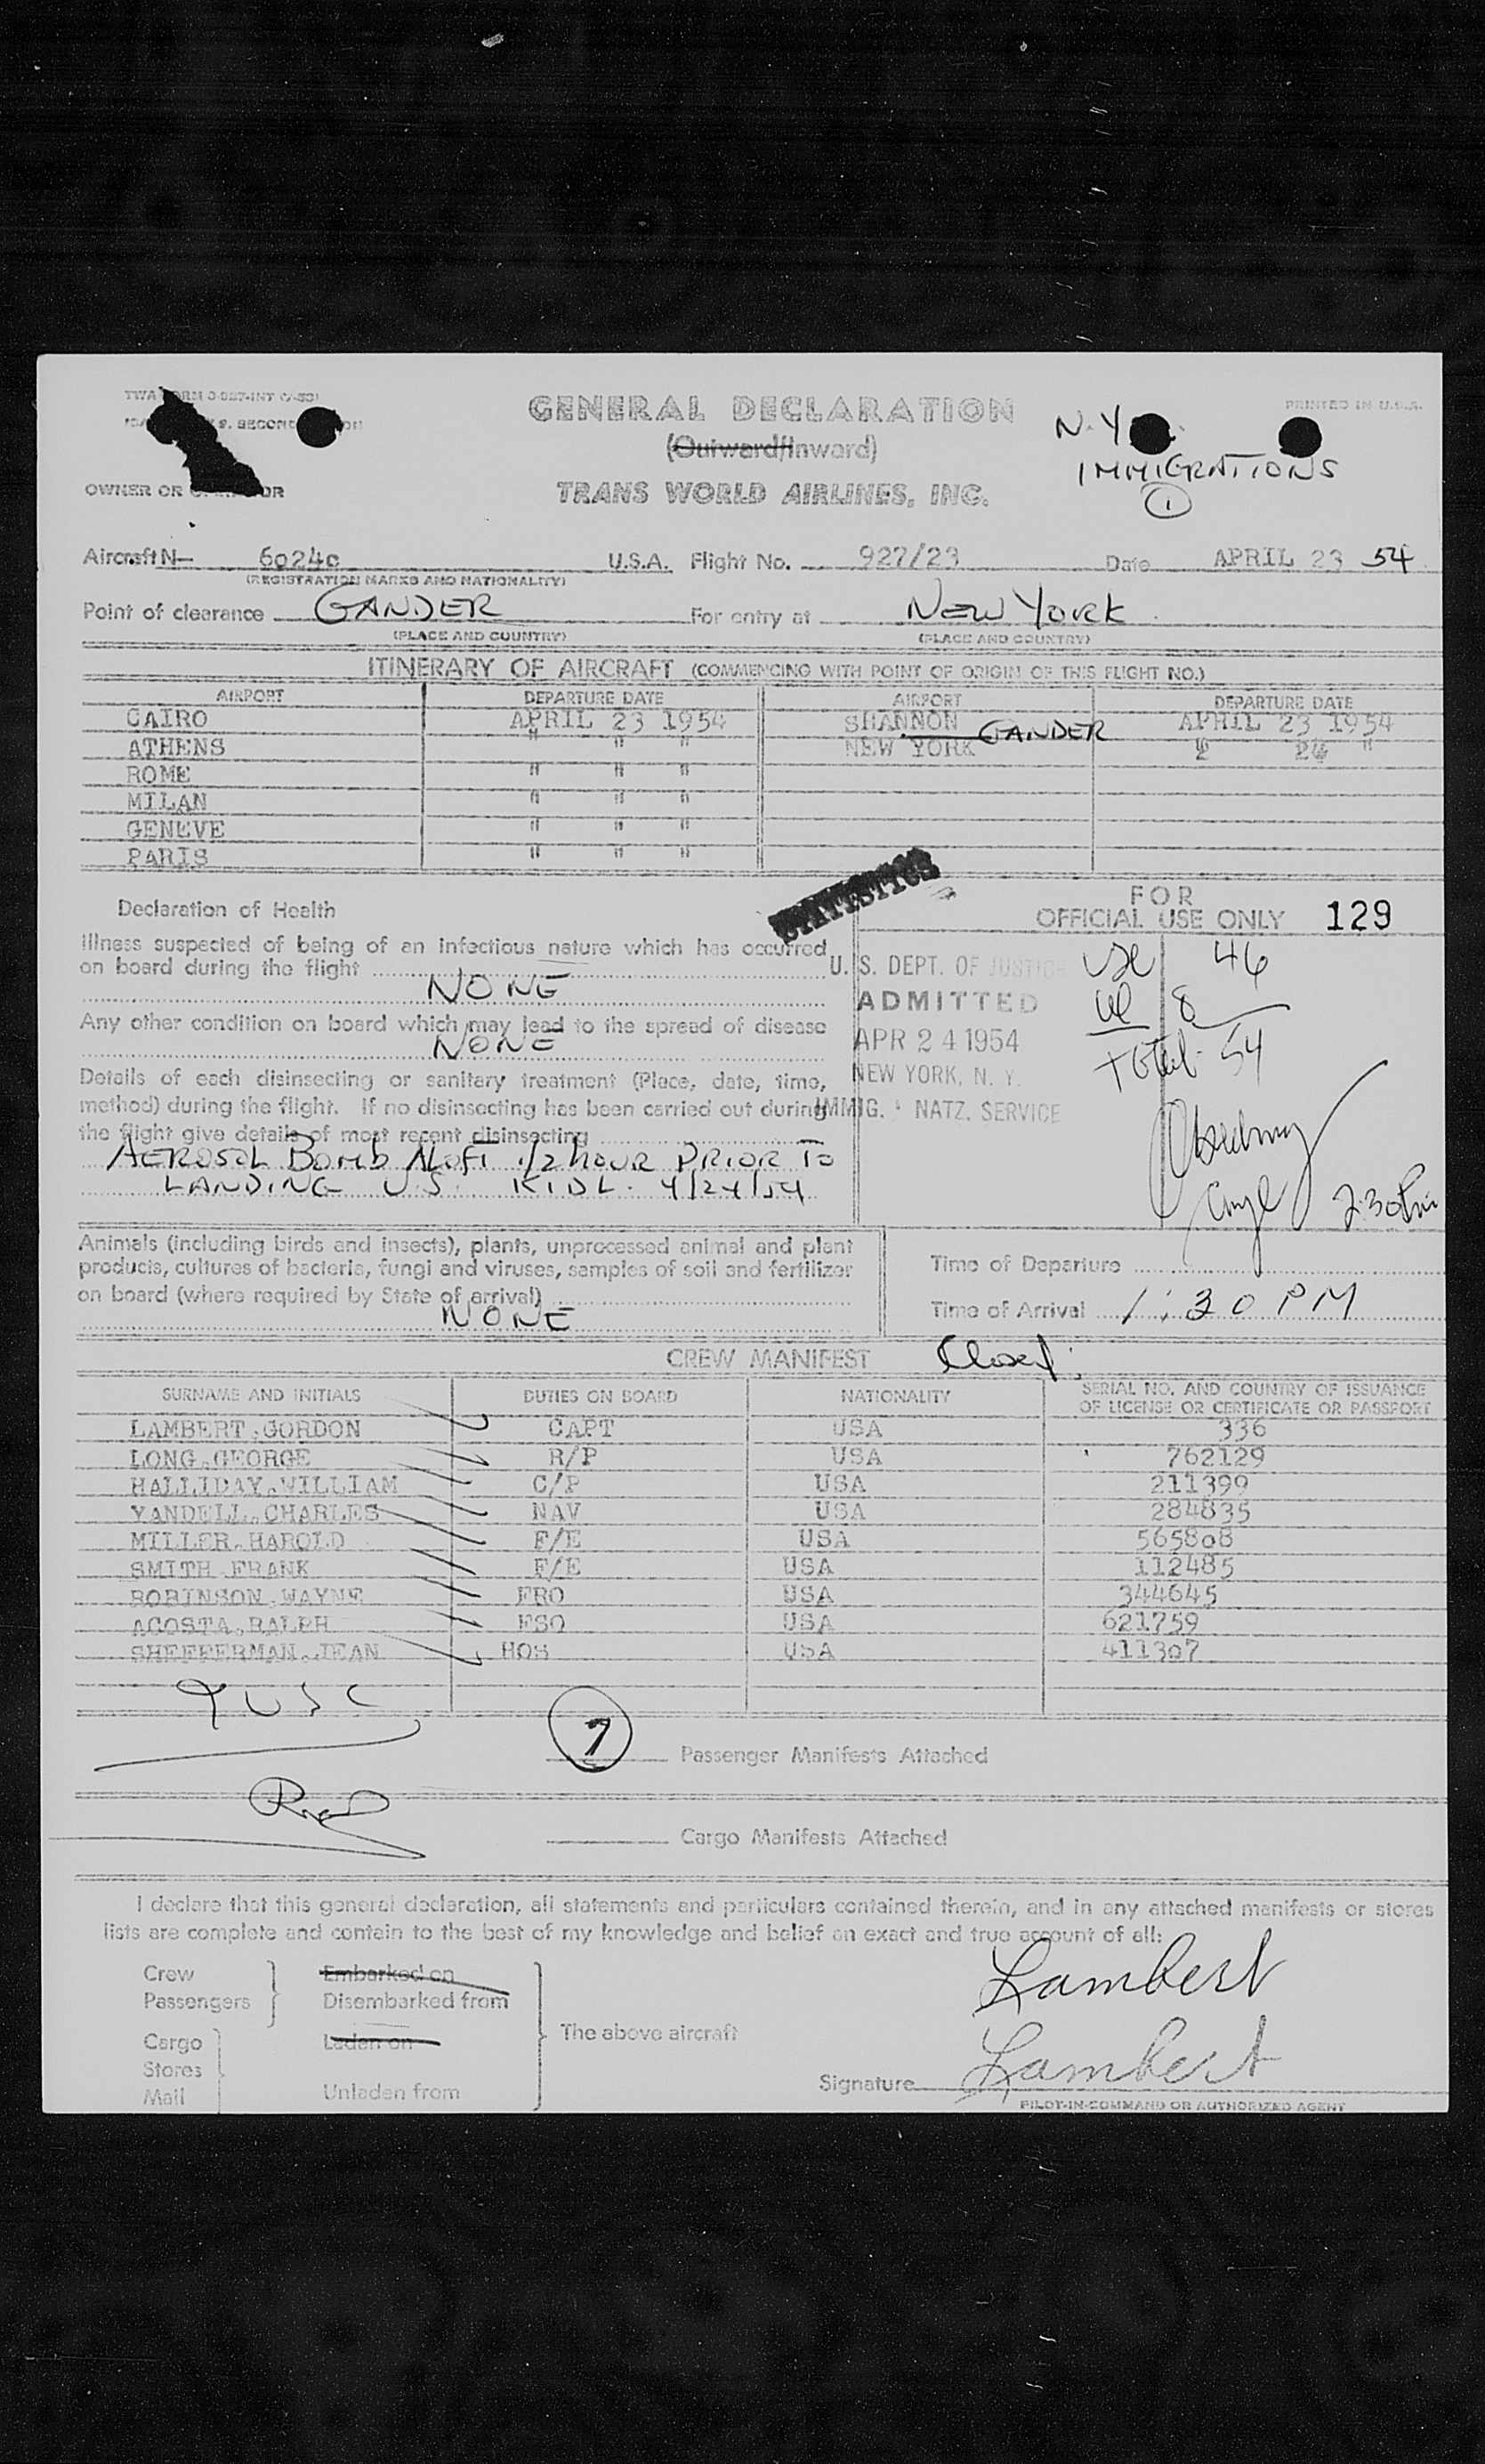 GENERAL DECLARATION
(Outward/Inward)
TRANS WORLD AIRLINES, INC.
N.Y.
IMMIGRATIONS
1
PRINTED IN U.S.A.
OWNER OR
Aircraft N- 6024c U.S.A. Flight No. 927/23 Date APRIL 23 54
(REGISTRATION MARKS AND NATIONALITY)
Point of clearance GANDER For entry at NEW YORK
(PLACE AND COUNTRY) (PLACE AND COUNTRY)
ITINERARY OF AIRCRAFT (COMMENCING WITH POINT OF ORIGIN OF THIS FLIGHT NO.)
AIRPORT DEPARTURE DATE AIRPORT DEPARTURE DATE
CAIRO APRIL 23 1954 SHANNON GANDER APRIL 23 1954
ATHENS " " " NEW YORK 24 "
ROME " " "
MILAN " " "
GENEVE " " "
PARIS " " "
STATISTICS
FOR
OFFICIAL USE ONLY 129
Declaration of Health
Illness suspected of being of an infectious nature which has occurred
on board during the flight
NONE
Any other condition on board which may lead to the spread of disease
NONE
Details of each disinsecting or sanitary treatment (Place, date, time,
method) during the flight. If no disinsecting has been carried out during
the flight give details of most recent disinsecting
AEROSOL BOMB ALOFT 1/2 HOUR PRIOR TO
LANDING U.S. KIDL. 4/24/54
U.S. DEPT. OF JUSTICE
ADMITTED
APR 24 1954
NEW YORK, N.Y.
IMMIG. & NATZ. SERVICE
46
8
Total 54
2:30 Pm
Animals (including birds and insects), plants, unprocessed animal and plant
products, cultures of bacteria, fungi and viruses, samples of soil and fertilizer
on board (where required by State of arrival)
NONE
Time of Departure
Time of Arrival 1:30 PM
CREW MANIFEST Closed
SURNAME AND INITIALS DUTIES ON BOARD NATIONALITY SERIAL NO. AND COUNTRY OF ISSUANCE
OF LICENSE OR CERTIFICATE OR PASSPORT
LAMBERT,GORDON CAPT USA 336
LONG,GEORGE R/P USA 762129
HALLIDAY,WILLIAM C/P USA 211399
YANDELL,CHARLES NAV USA 284835
MILLER,HAROLD F/E USA 565808
SMITH,FRANK F/E USA 112485
ROBINSON,WAYNE FRO USA 344645
ACOSTA,RALPH FSO USA 621759
SHEFFERMAN,JEAN HOS USA 411307
9 USC
7 Passenger Manifests Attached
Cargo Manifests Attached
I declare that this general declaration, all statements and particulars contained therein, and in any attached manifests or stores
lists are complete and contain to the best of my knowledge and belief an exact and true account of all:
Crew Embarked on
Passengers Disembarked from
Cargo Laden on
Stores
Mail Unladen from
The above aircraft
Lambert
Signature Lambert
PILOT-IN-COMMAND OR AUTHORIZED AGENT